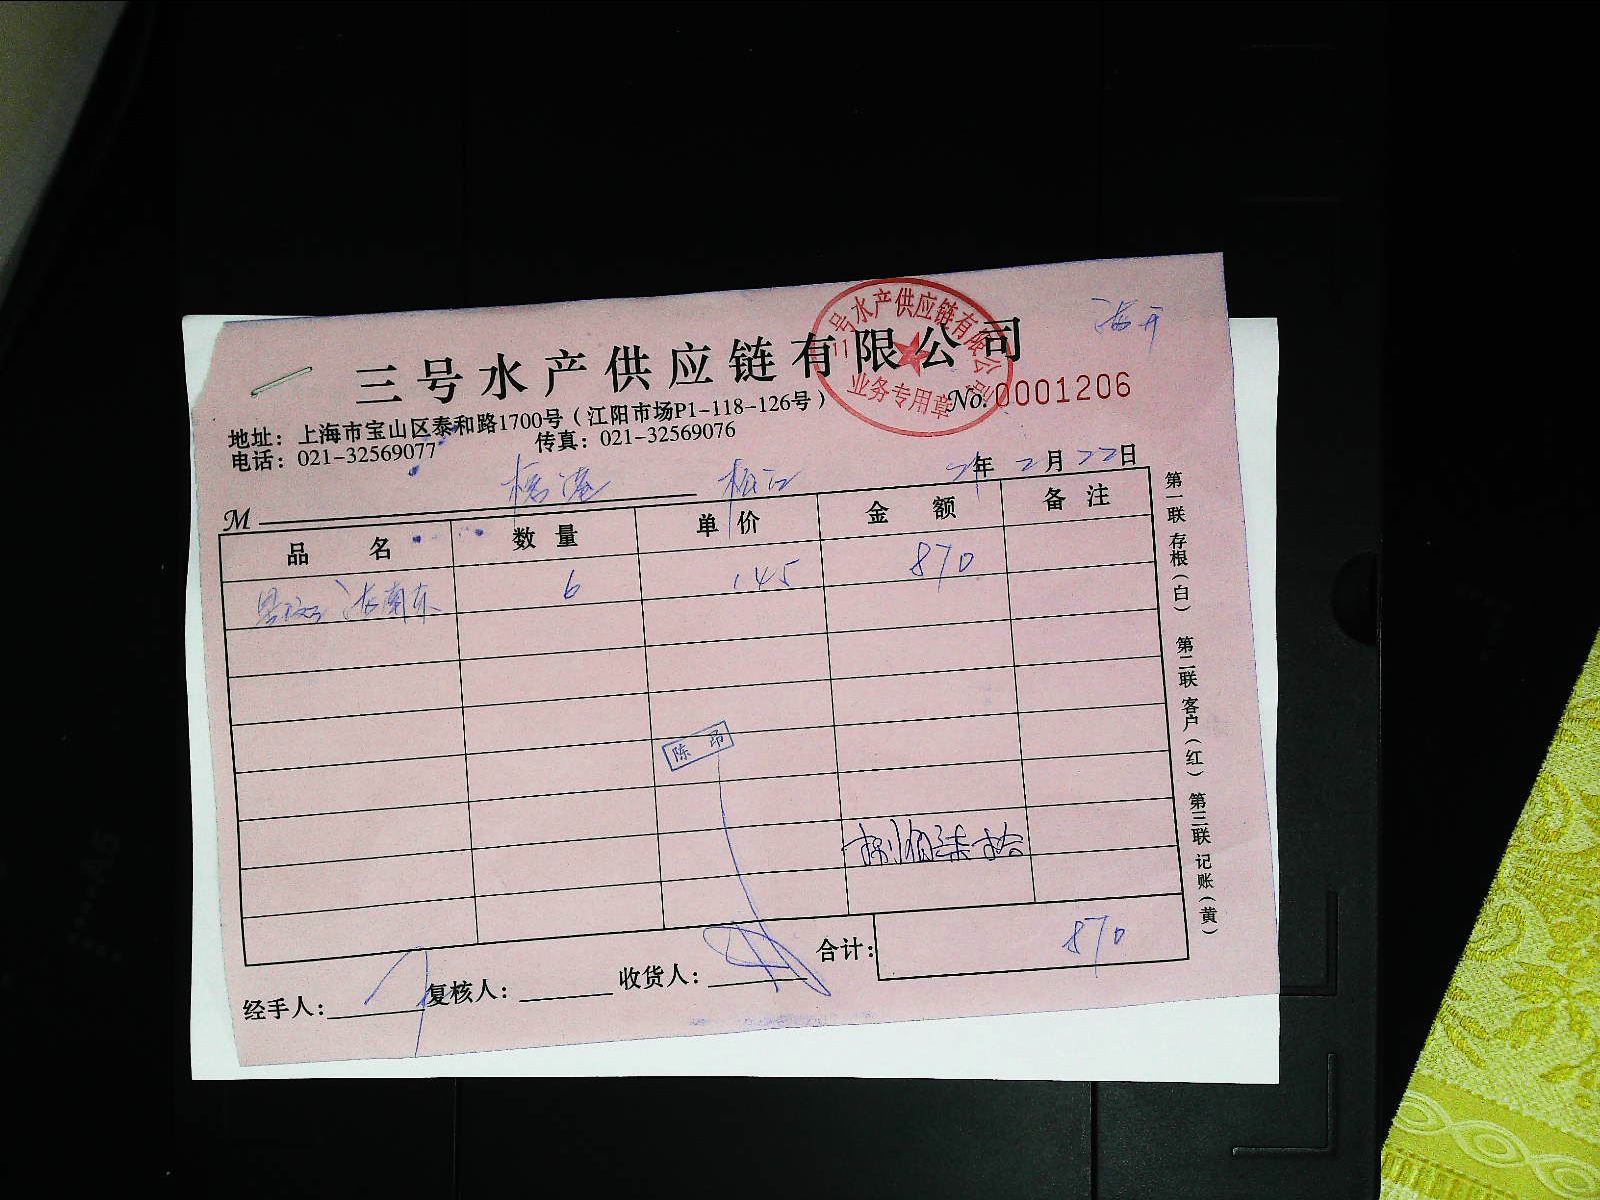 三号水产供应链有限公司
三号水产供应链有限公司
业务专用章
No. 0001206
地址：上海市宝山区泰和路1700号（江阳市场P1-118-126号）
电话：021-32569077 传真：021-32569076
年 2月22日
M
品名 数量 单价 金额 备注
6 145 870
陈
捌佰柒拾
合计: 870
经手人: 复核人: 收货人:
第一联 存根（白） 第二联 客户（红） 第三联 记账（黄）